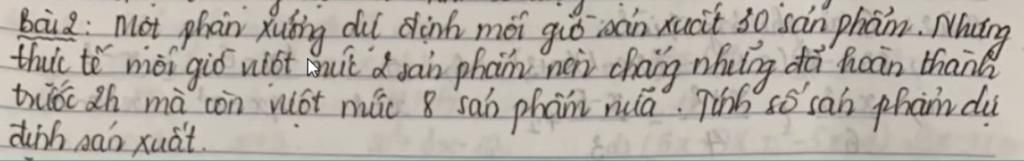 Bài 2: Một phân xưởng dự định mỗi giờ sản xuất 30 sản phẩm. Nhưng
thực tế mỗi giờ vượt mức 2 sản phẩm nên chẳng những đã hoàn thành
trước 2h mà còn vượt mức 8 sản phẩm nữa. Tính số sản phẩm dự
định sản xuất.